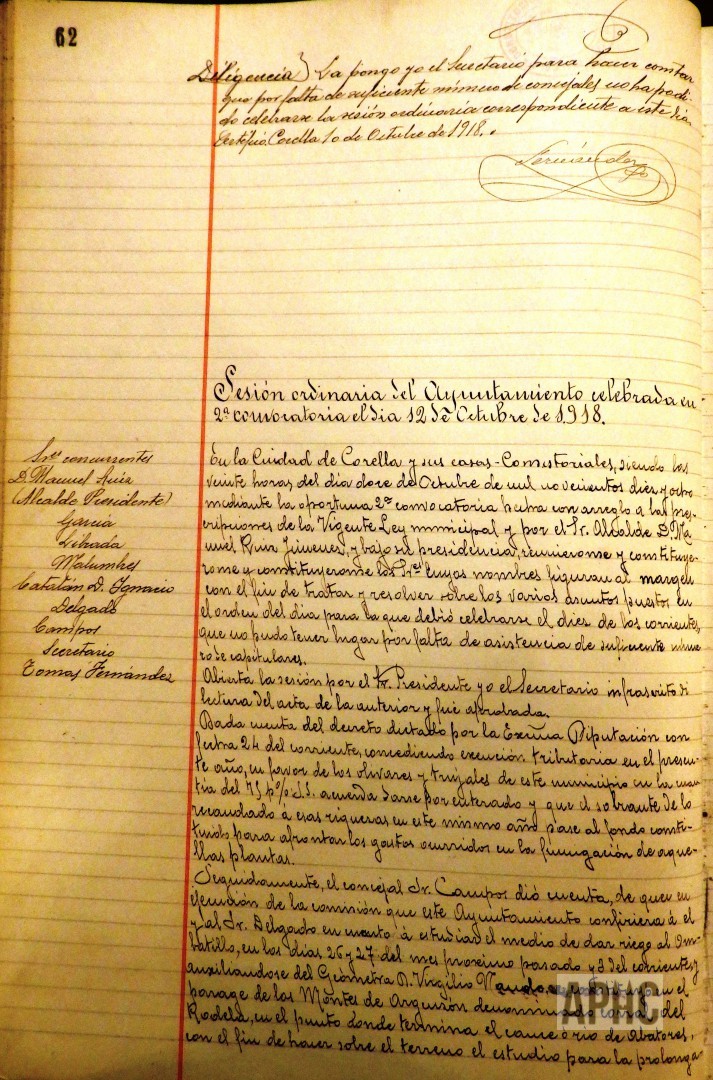 62
Diligencia) La pongo yo el Secretario para hacer constar
que por falta de suficiente número de concejales no ha podi-
do celebrarse la sesión ordinaria correspondiente a este dia
Certifico Corella 10 de Octubre de 1918.
Fernández
Sesión ordinaria del Ayuntamiento celebrada en
2ª convocatoria el dia 12 de Octubre de 1918.
Sres concurrentes
D. Manuel Ruiz
(Alcalde Presidente)
Garcia
Librada
Malumbres
Catalán D. Ignacio
Delgado
Campos
Secretario
Tomas Fernández
En la Ciudad de Corella y sus casas-Consistoriales, siendo las
veinte horas del dia doce de Octubre de mil novecientos diez y ocho
mediante la oportuna 2ª convocatoria hecha con arreglo a las pres-
cripciones de la Vigente Ley municipal y por el Sr. Alcalde D. Ma-
nuel Ruiz Jimenez, y bajo su presidencia, reunieronse y constituye-
ronse y constituyeronse los Sres cuyos nombres figuran al margen
con el fin de tratar y resolver sobre los varios asuntos puestos en
el orden del dia para la que debió celebrarse el diez de los corrientes,
que no pudo tener lugar por falta de asistencia de suficiente núme-
ro de capitulares.
Abierta la sesión por el Sr. Presidente yo el Secretario infrascrito di
lectura del acta de la anterior y fué aprobada.
Dada cuenta del decreto dictado por la Excma Diputación con
fecha 24 del corriente, concediendo exención tributaria en el presen-
te año, en favor de los olivares y trujales de este municipio en la cuan-
tia del 75 p% S.S. acuerda darse por enterado y que el sobrante de lo
recaudado a esas riquezas en este mismo año pase al fondo consti-
tuido para afrontar los gastos ocurridos en la fumigación de aque-
llas plantas.
Seguidamente, el concejal Sr. Campos dió cuenta, de que en
ejecución de la comisión que este Ayuntamiento confiriera á el
y al Sr. Delgado en cuanto á estudiar el medio de dar riego al Om-
batillo, en los dias 26 y 27 del mes proximo pasado y 3 del corriente, y
auxiliandose del Geómetra D. Virgilio en el
parage de los Montes de Argenzón denominado del
Rodela, en el punto donde termina el cauce o rio de Abatores,
con el fin de hacer sobre el terreno el estudio para la prolonga-
APHC